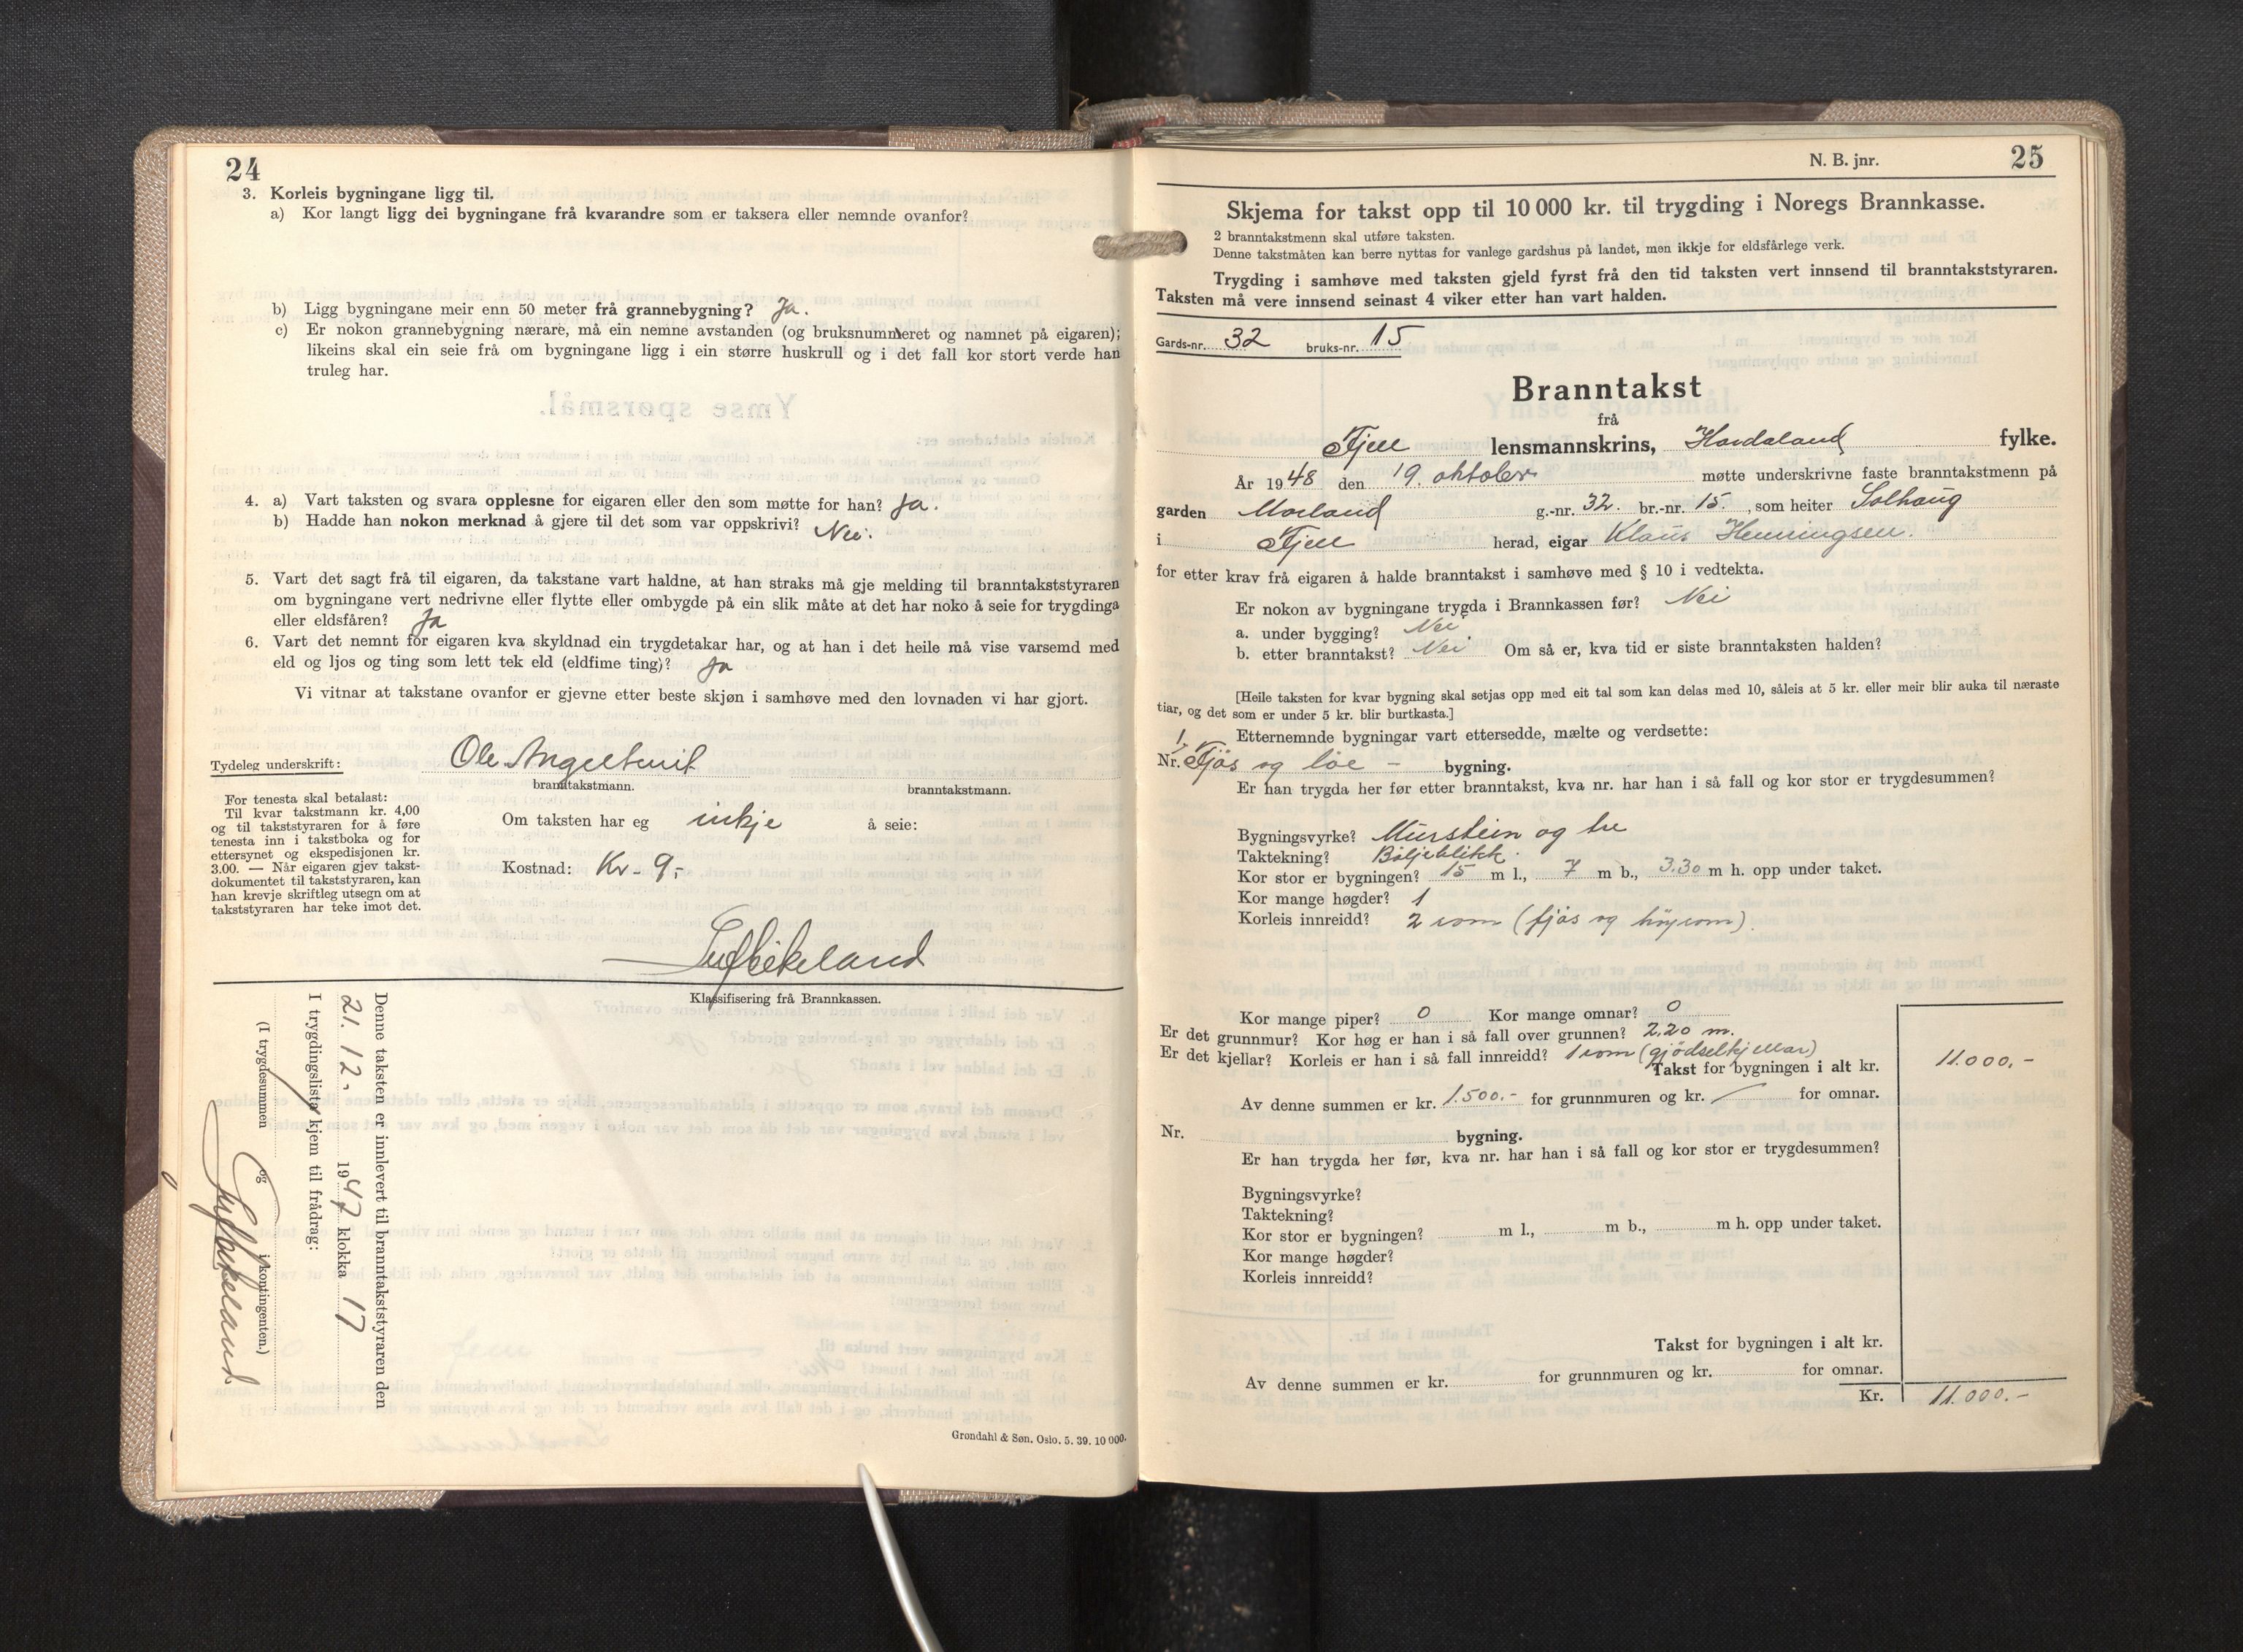 24
3. Korleis bygningane ligg til.
a) Kor langt ligg dei bygningane frå kvarandre som er taksera eller nemnde ovanfor?
b) Ligg bygningane meir enn 50 meter frå grannebygning? Ja.
c) Er nokon grannebygning nærare, må ein nemne avstanden (og bruksnummeret og namnet på eigaren);
likeins skal ein seie frå om bygningane ligg i ein større huskrull og i det fall kor stort verde han
truleg har.
4. a) Vart taksten og svara opplesne for eigaren eller den som møtte for han? Ja.
b) Hadde han nokon merknad å gjere til det som var oppskrivi? Nei.
5. Vart det sagt frå til eigaren, da takstane vart haldne, at han straks må gje melding til branntakststyraren
om bygningane vert nedrivne eller flytte eller ombygde på ein slik måte at det har noko å seie for trygdinga
eller eldsfåren? Ja
6. Vart det nemnt for eigaren kva skyldnad ein trygdetakar har, og at han i det heile må vise varsemd med
eld og ljos og ting som lett tek eld (eldfime ting)? Ja
Vi vitnar at takstane ovanfor er gjevne etter beste skjøn i samhøve med den lovnaden vi har gjort.
Tydeleg underskrift: Ole Angeltveit
branntakstmann. branntakstmann.
For tenesta skal betalast:
Til kvar takstmann kr. 4,00
og til takststyraren for å føre
tenesta inn i takstboka og for
ettersynet og ekspedisjonen kr.
3.00. — Når eigaren gjev takst-
dokumentet til takststyraren, kan
han krevje skriftleg utsegn om at
takststyraren har teke imot det.
Om taksten har eg inkje å seie:
Kostnad: Kr - 9,-
Klassifisering frå Brannkassen.
Denne taksten er innlevert til branntakststyraren den
21. 12. 1947 klokka 17
I trygdingslista kjem til frådrag:
(I trygdesummen og i kontingenten.)
Grøndahl & Søn, Oslo. 5. 39. 10 000.
N. B. jnr. 25
Skjema for takst opp til 10 000 kr. til trygding i Noregs Brannkasse.
2 branntakstmenn skal utføre taksten.
Denne takstmåten kan berre nyttas for vanlege gardshus på landet, men ikkje for eldsfårlege verk.
Trygding i samhøve med taksten gjeld fyrst frå den tid taksten vert innsend til branntakststyraren.
Taksten må vere innsend seinast 4 viker etter han vart halden.
Gards-nr. 32 bruks-nr. 15
Branntakst
frå
Fjell lensmannskrins, Hordaland fylke.
År 1948 den 19. oktober møtte underskrivne faste branntakstmenn på
garden Morland g.-nr. 32. br.-nr. 15. , som heiter Solhaug
i Fjell herad, eigar Klaus Henningsen.
for etter krav frå eigaren å halde branntakst i samhøve med § 10 i vedtekta.
Er nokon av bygningane trygda i Brannkassen før? Nei
a. under bygging? Nei.
b. etter branntakst? Nei Om så er, kva tid er siste branntaksten halden?
[Heile taksten for kvar bygning skal setjas opp med eit tal som kan delas med 10, såleis at 5 kr. eller meir blir auka til næraste
tiar, og det som er under 5 kr. blir burtkasta.]
Etternemnde bygningar vart ettersedde, mælte og verdsette:
Nr. 1, Fjøs og løe - bygning.
Er han trygda her før etter branntakst, kva nr. har han i så fall og kor stor er trygdesummen?
Bygningsvyrke? Murstein og tre
Taktekning? Bøljeblikk.
Kor stor er bygningen? 15 m l., 7 m b., 3.30 m h. opp under taket.
Kor mange høgder? 1
Korleis innreidd? 2 rom (fjøs og høyrom).
Kor mange piper? 0 Kor mange omnar? 0
Er det grunnmur? Kor høg er han i så fall over grunnen? 2.20 m.
Er det kjellar? Korleis er han i så fall innreidd? 1 rom (gjødselkjellar)
Takst for bygningen i alt kr. 11.000,-
Av denne summen er kr. 1.500.- for grunnmuren og kr. — for omnar.
Nr. bygning.
Er han trygda her før, kva nr. har han i så fall og kor stor er trygdesummen?
Bygningsvyrke?
Taktekning?
Kor stor er bygningen? m l., m b., m h. opp under taket.
Kor mange høgder?
Korleis innreidd?
Takst for bygningen i alt kr.
Av denne summen er kr. for grunnmuren og kr. for omnar.
Kr. 11.000.-